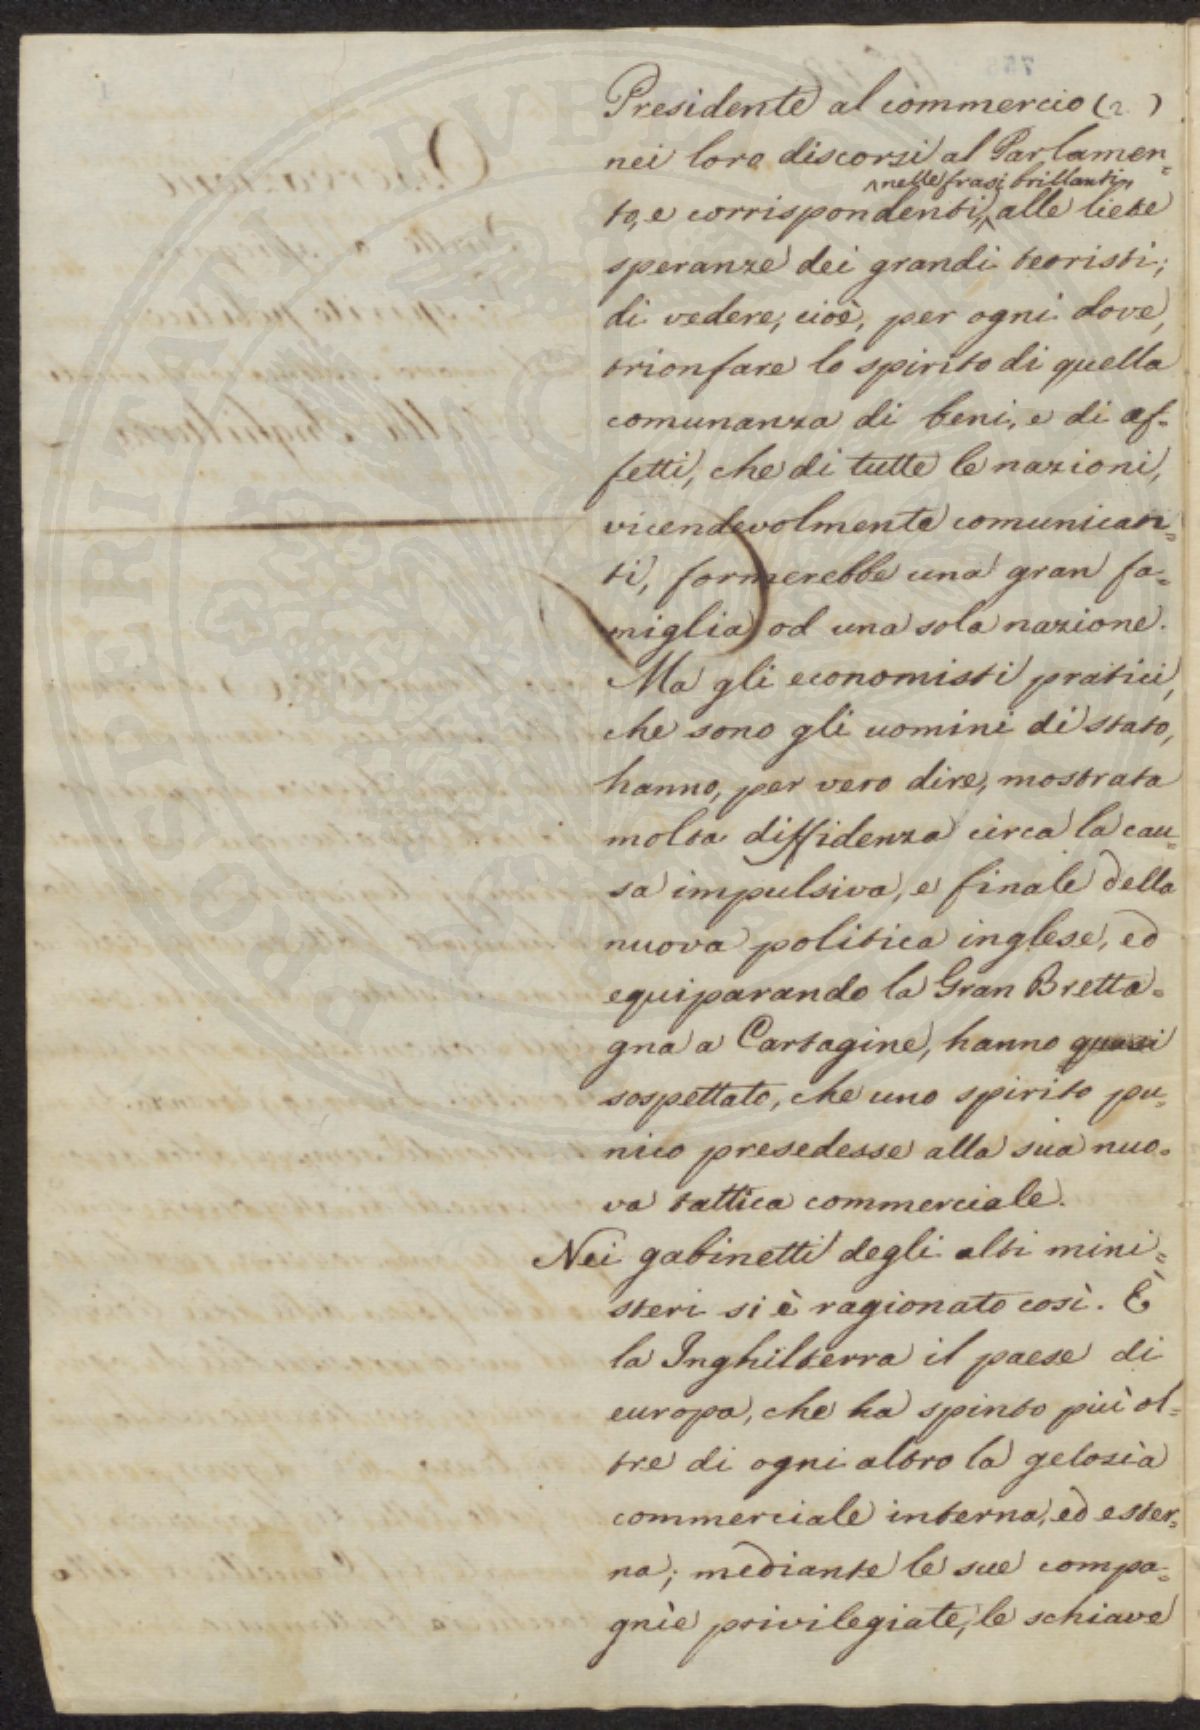 Presidente al commercio (2)
nei loro discorsi al Parlamen=
^nelle frasi brillanti,
to, e corrispondenti,^ alle liete
speranze dei grandi teoristi;
di vedere, cioè, per ogni dove,
trionfare lo spirito di quella
comunanza di beni, e di af=
fetti, che di tutte le nazioni,
vicendevolmente comunican=
ti, formerebbe una gran fa=
miglia od una sola nazione.
Ma gli economisti pratici,
che sono gli uomini di stato,
hanno, per vero dire, mostrata
molta diffidenza circa la cau=
sa impulsiva, e finale della
nuova politica inglese, ed
equiparando la Gran Bretta=
gna a Cartagine, hanno quasi
sospettato, che uno spirito pu=
nico presedesse alla sua nuo=
va tattica commerciale.
Nei gabinetti degli alti mini=
steri si è ragionato così. È
la Inghilterra il paese di
europa, che ha spinto più ol=
tre di ogni altro la gelosia
commerciale interna, ed ester=
na; mediante le sue compa=
gnìe privilegiate, le schiave
PROSPERITATI PUBLICAE